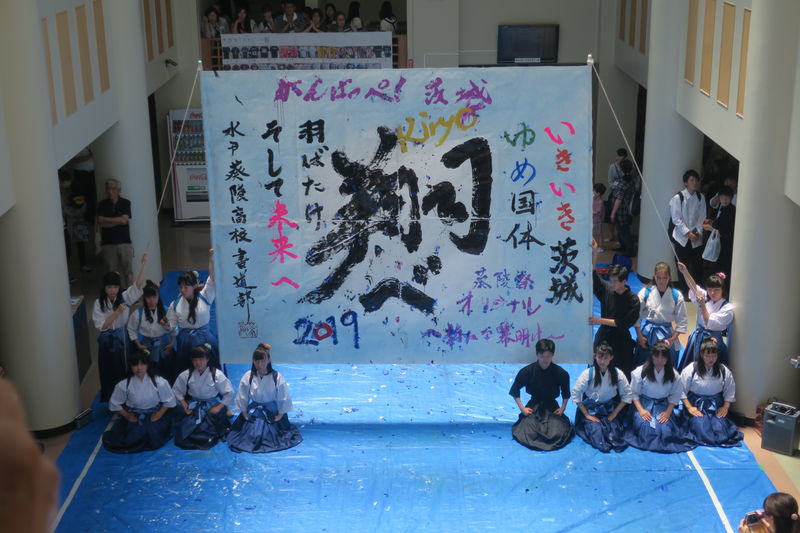 がんばっぺ！茨城
Kiryo
いきいき茨城
ゆめ国体
翔べ
羽ばたけ
そして未来へ
水戸葵陵高校書道部
2019
葵陵祭
オリジナル
〜新たな幕明け〜